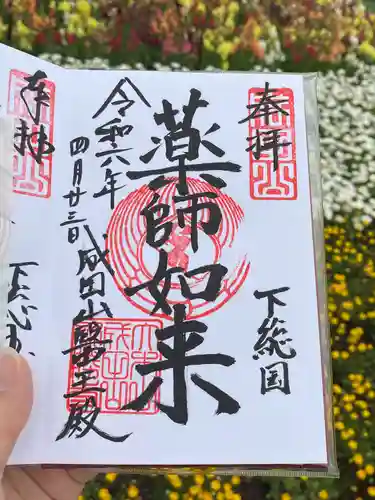 奉拝
下総国
薬師如来
令和六年
四月廿三日
成田山醫王殿
奉拝